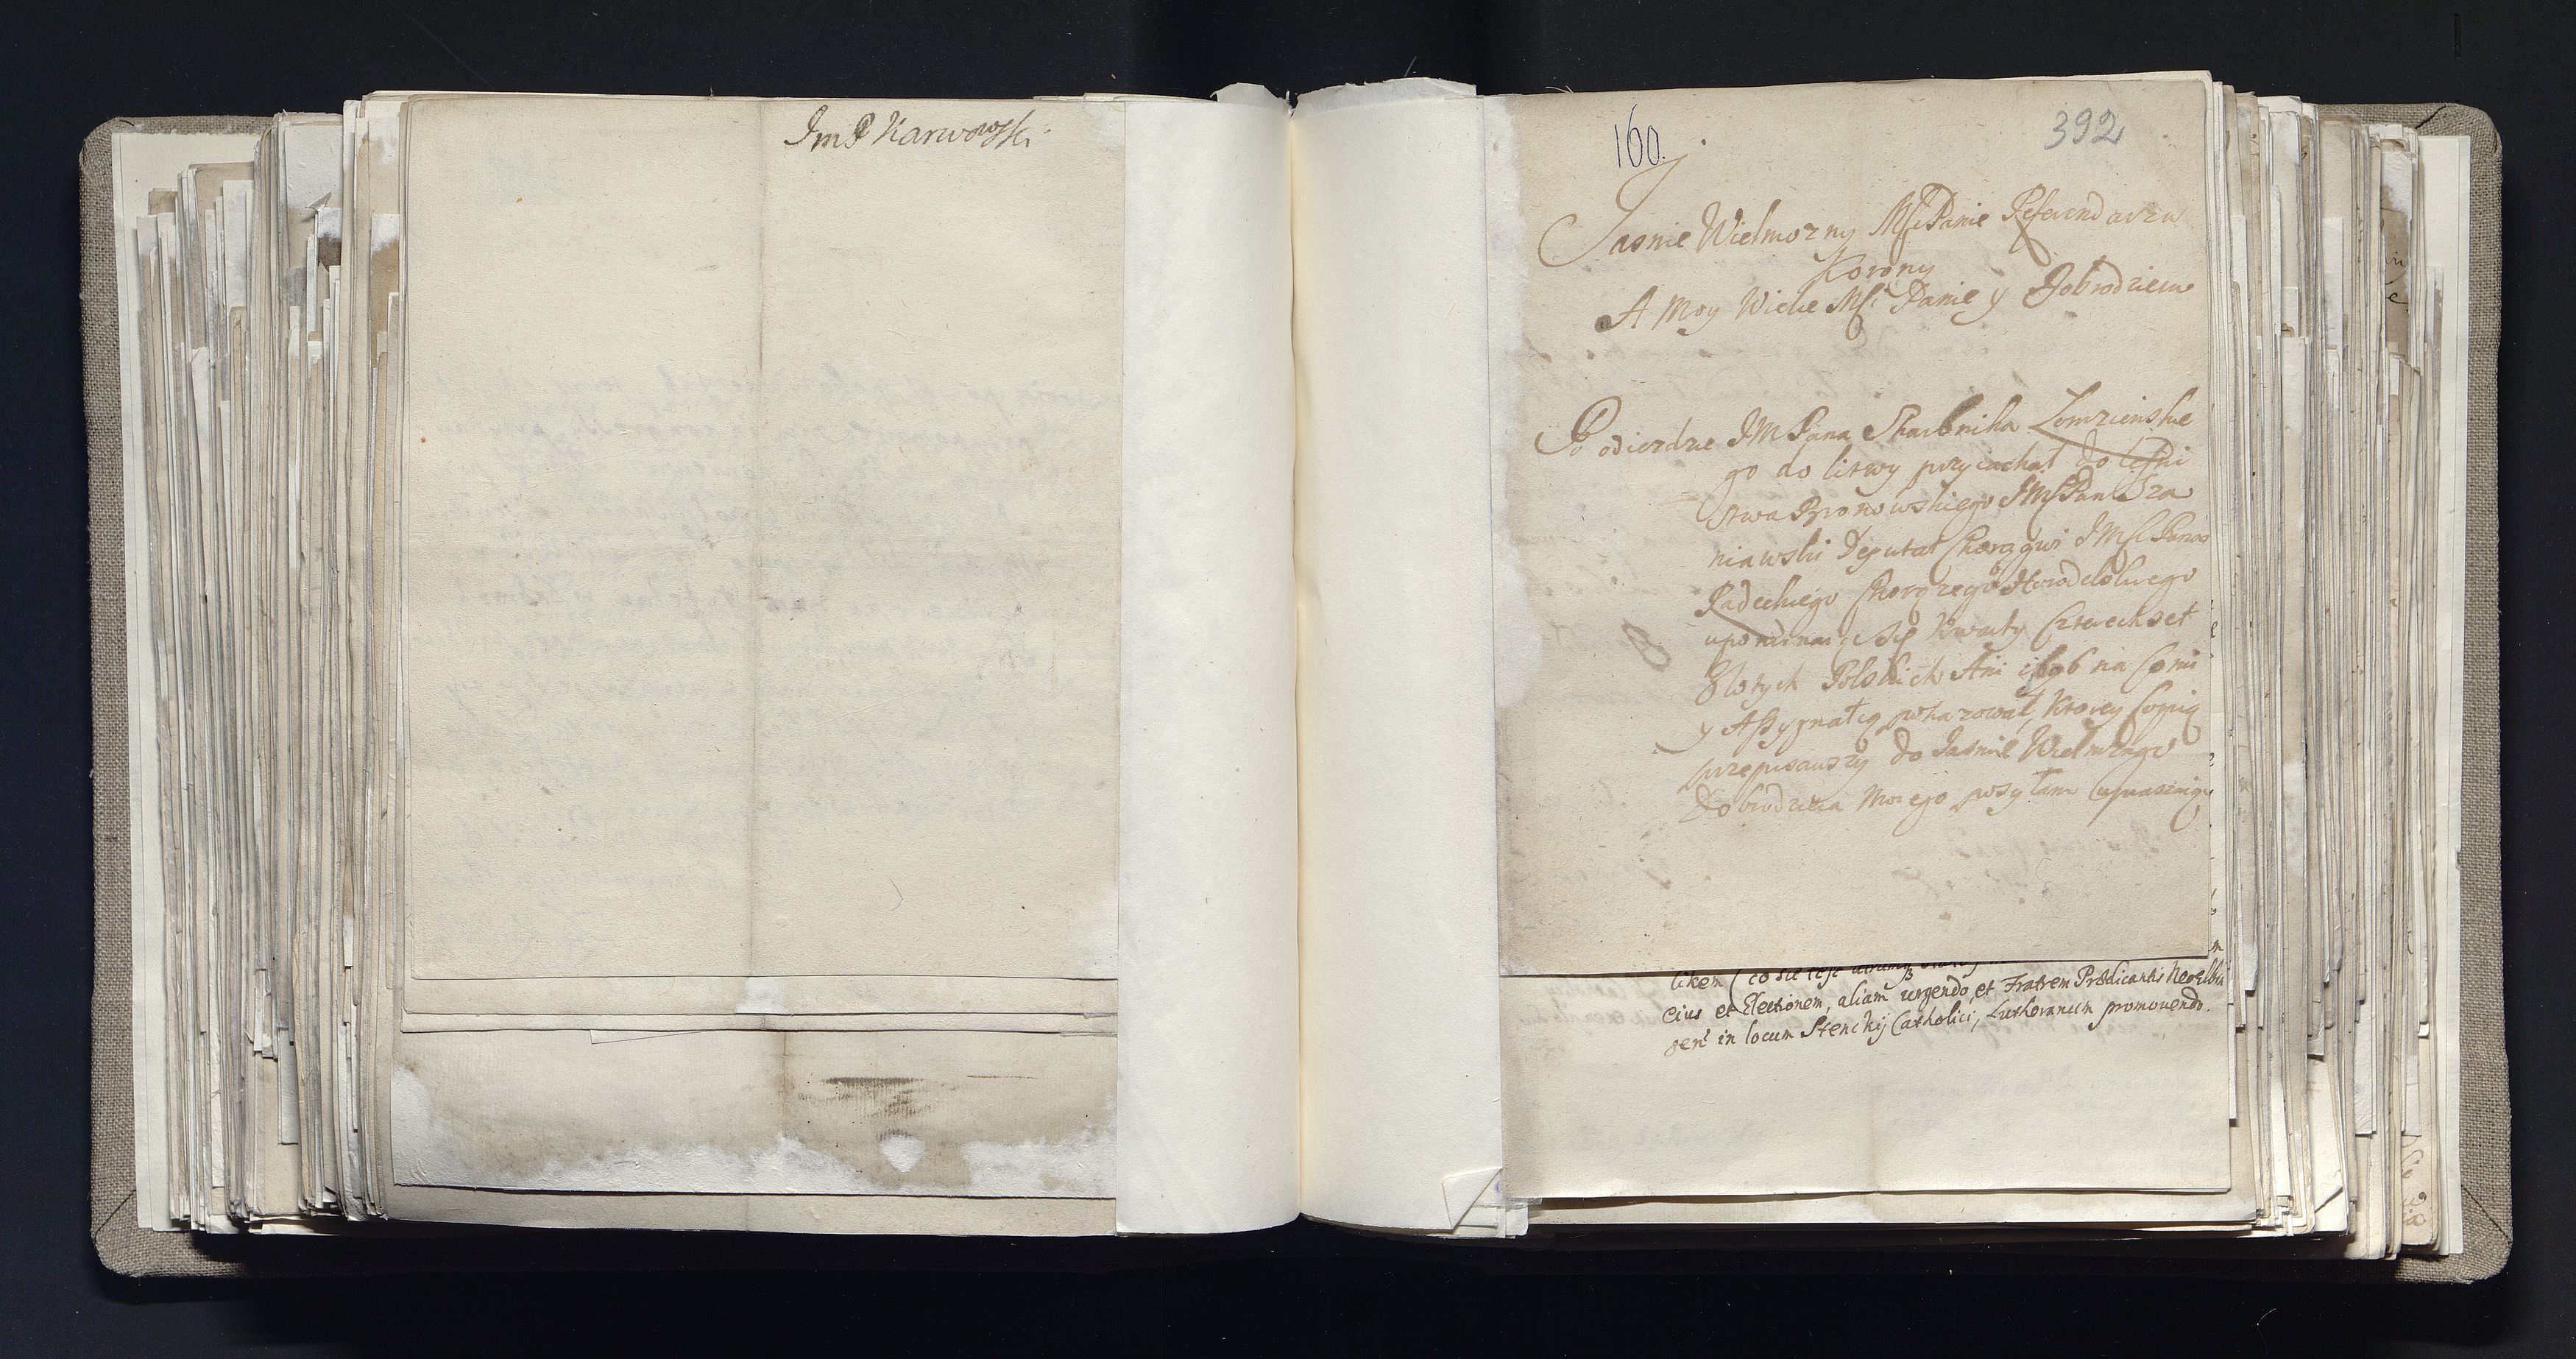 Im P Karwowski
160.
392
Jasnie Wielmozny MsciPanie Referendarzu
Korony
A Moy Wielce Msci Panie y Dobrodzieiu
Po odiezdzie IM Pana Skarbnika Lomzienskie
go do litwy przyiachał do leśni
stwa IMsPan
niawski Deputat Chorągwi IMsc Pana
Radeckiego Chorązego Horodelskiego
upominaiąc się kwarty Czterechset
Złotych Polskich Ani 1696 na Comi
y Assygnatią pokazował, Ktorey Copią
przepisawszy do Jasnie Wielmznego
Dobrodzieia Moiego posyłam upraszaiąc
likem (co sie
eius et Electionem, aliam urgendo, et Fratrem Prædicantis
gen: in locum Stenckij Catholici, Lutheranum promovendo.